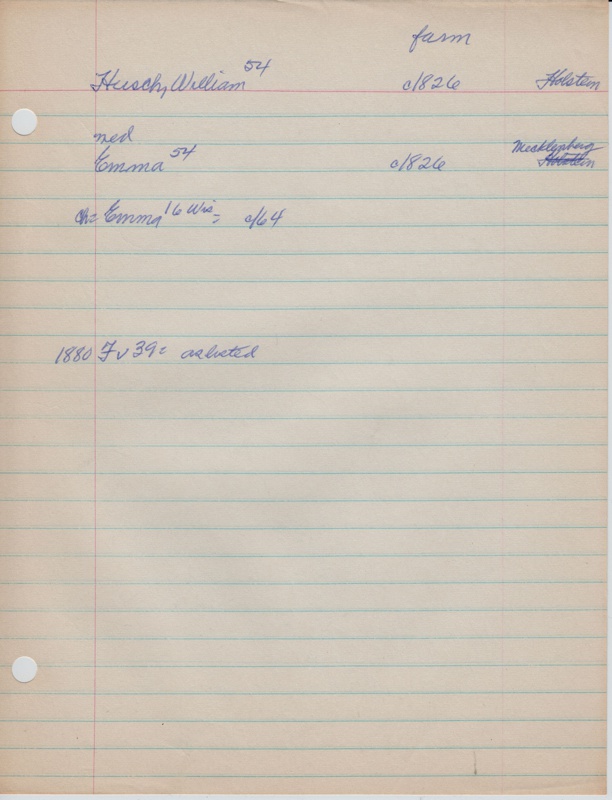 farm
Husch, William 54 c/1826 Holstein
med
Emma 54 c/1826 Mecklenberg Holstein
ch= Emma 16 Wis= c/64
1880 Fv 39= as listed